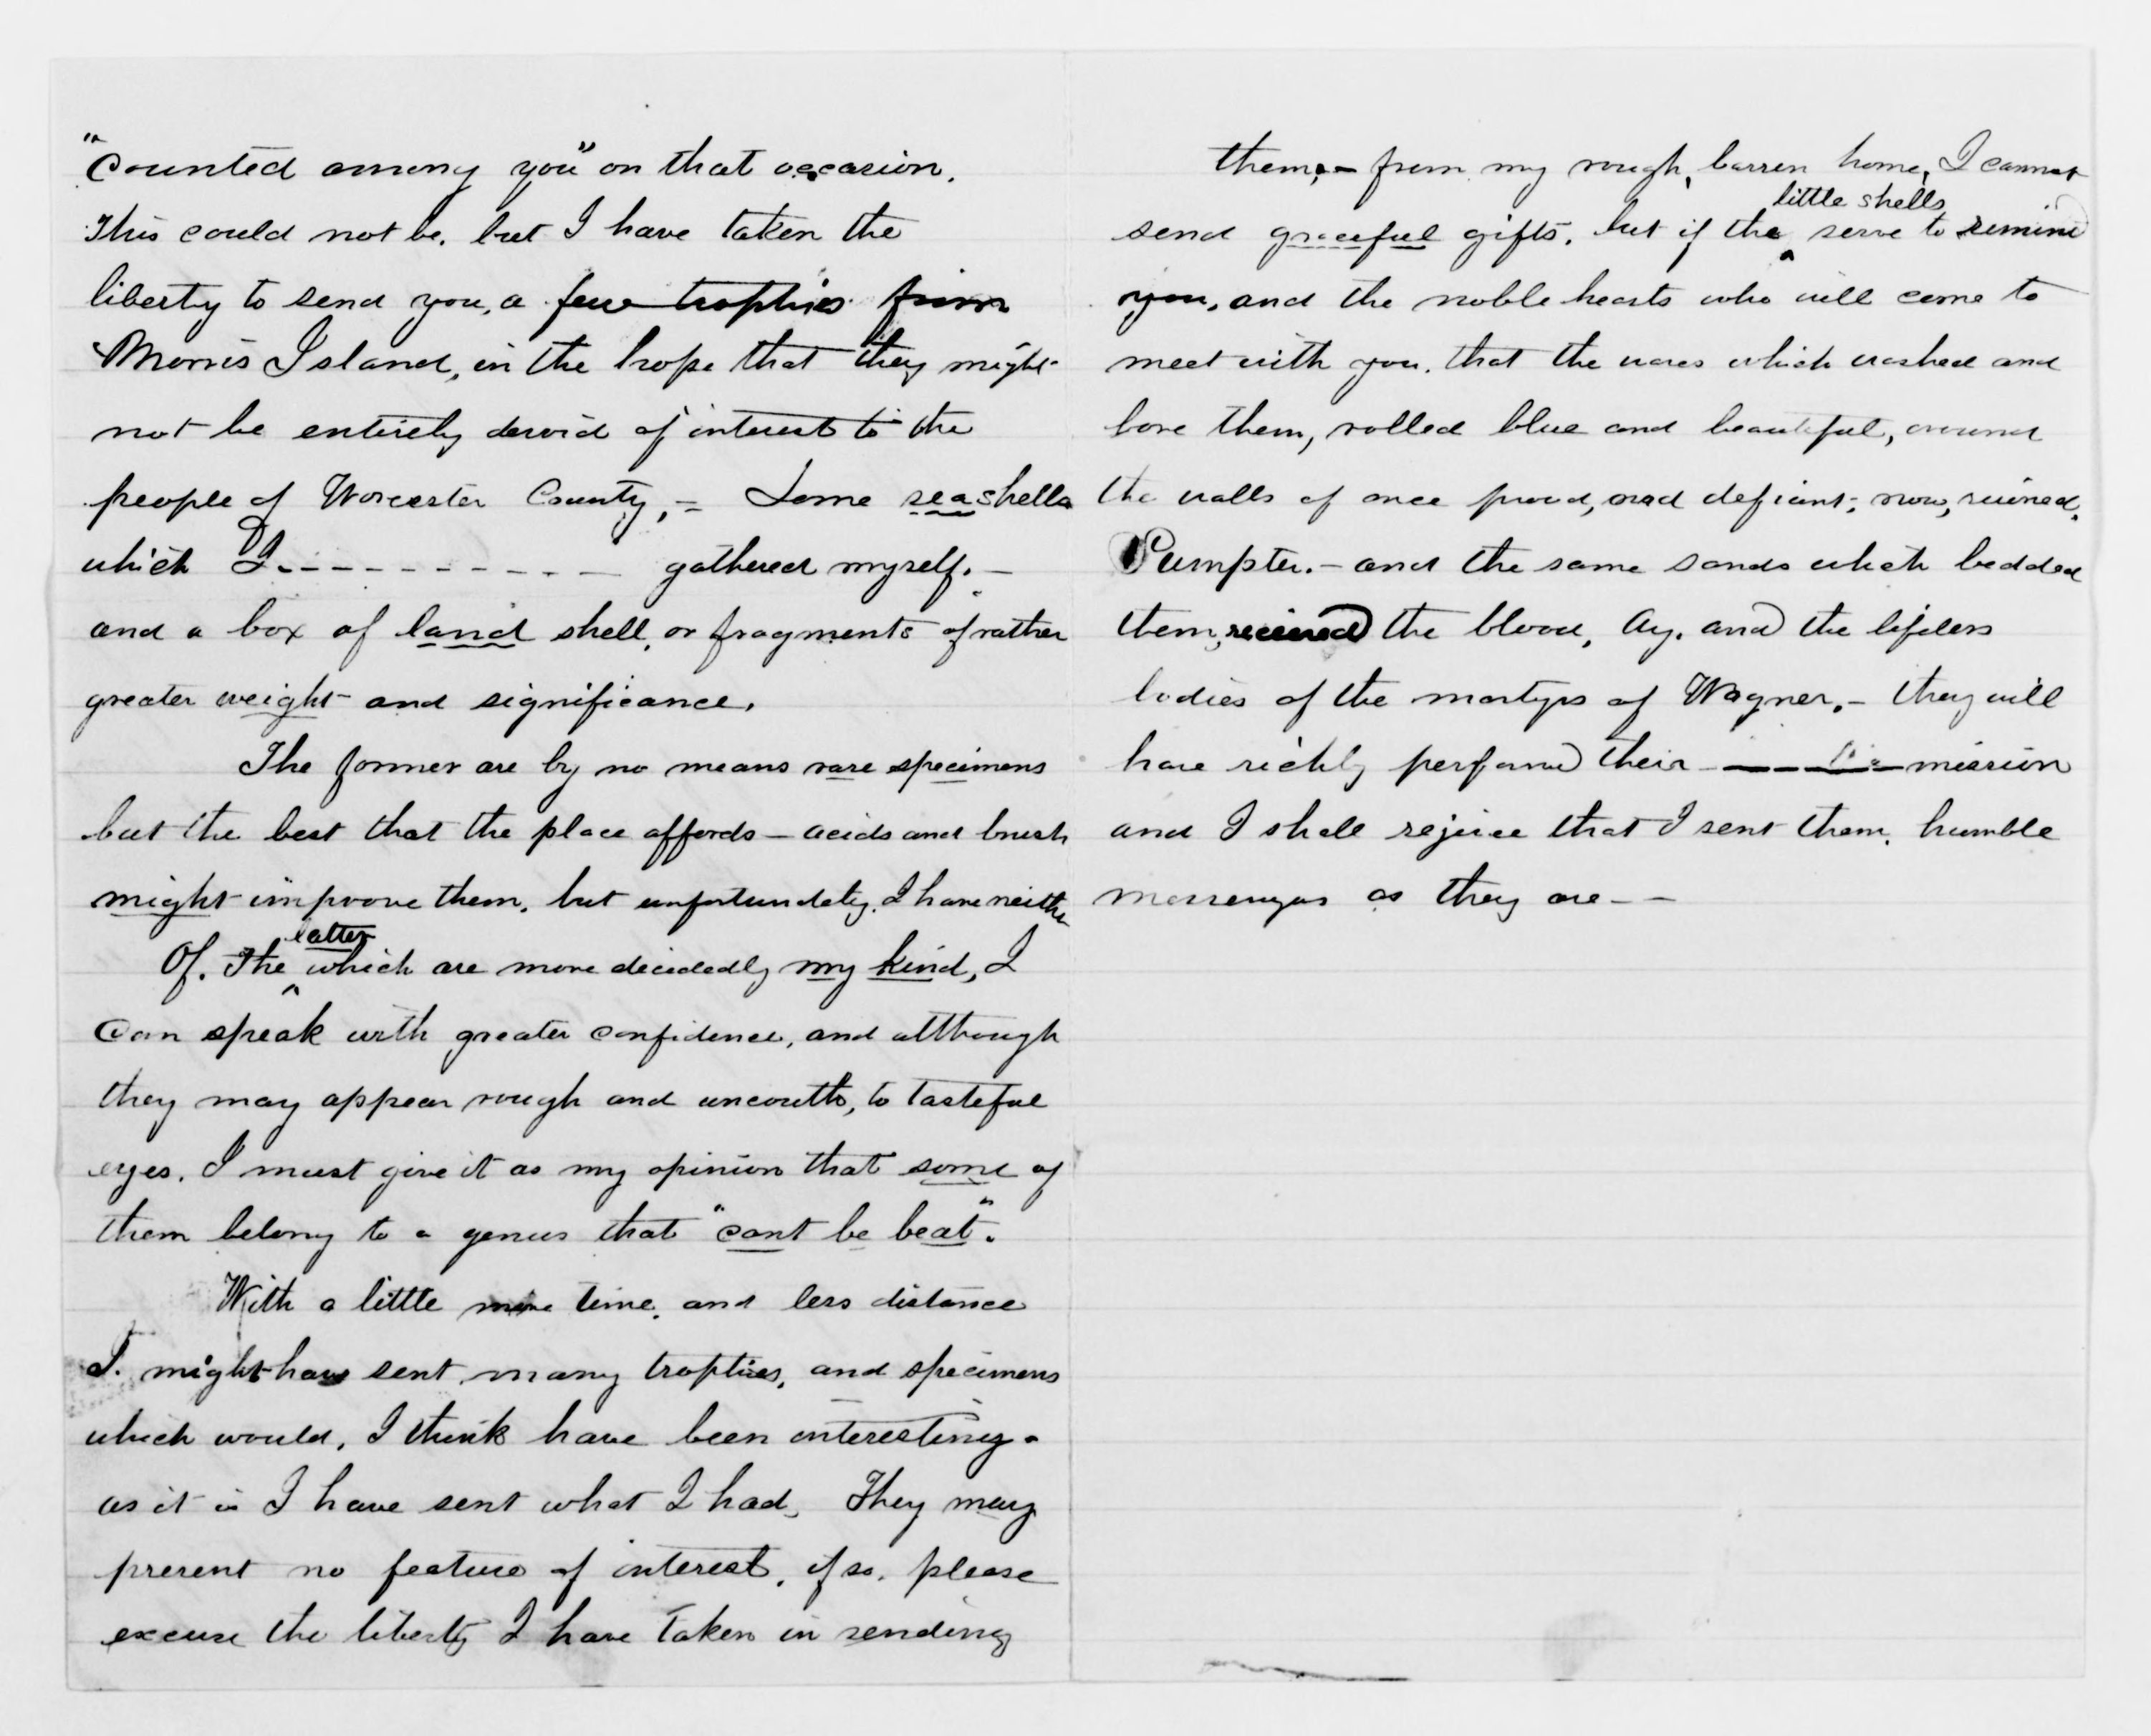 "Counted among you" on that occasion.
This could not be, but I have taken the
liberty to send you, a few trophies from
Morris Island, in the hope that they might
not be entirely devoid of interest to the
people of Worcester County, = Some seashells
which I - - - - - - - - - - gathered myself. -
and a box of land shell, or fragments of rather
greater weight and significance.
The former are by no means rare specimens
but the best that the place affords - acids and brush
might improve them, but unfortunately I have neither
Of. The latter which are more decidedly my kind, I
can speak with greater confidence, and although
they may appear rough and uncouth, to tasteful
eyes, I must give it as my opinion that some of
them belong to a genus that "cant be beat".
With a little more time, and less distance
I. might have sent many trophies, and specimens
which would, I think have been interesting -
as it is I have sent what I had, They may
present no feature of interest, if so, please
excuse the liberty I have taken in sending
them, - from my rough, barren home, I cannot
send graceful gifts, but if the little shells serve to remind
you, and the noble hearts who will come to
meet with you, that the waves which washed and
bore them, rolled blue and beautiful, around
the walls of once proud, and defiant; now, ruined,
Sumpter. - and the same sands which bedded
them, received the blood, Ay, and the lifeless
bodies of the martyrs of Wagner, - they will
have richly performed their - - - - mission
and I shall rejoice that I sent them, humble
messengers as they are - -